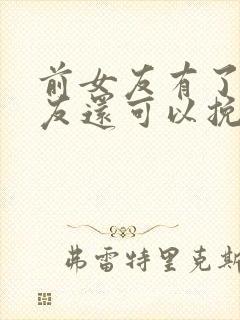 前女友有了
友還可以挽
弗雷特里克斯